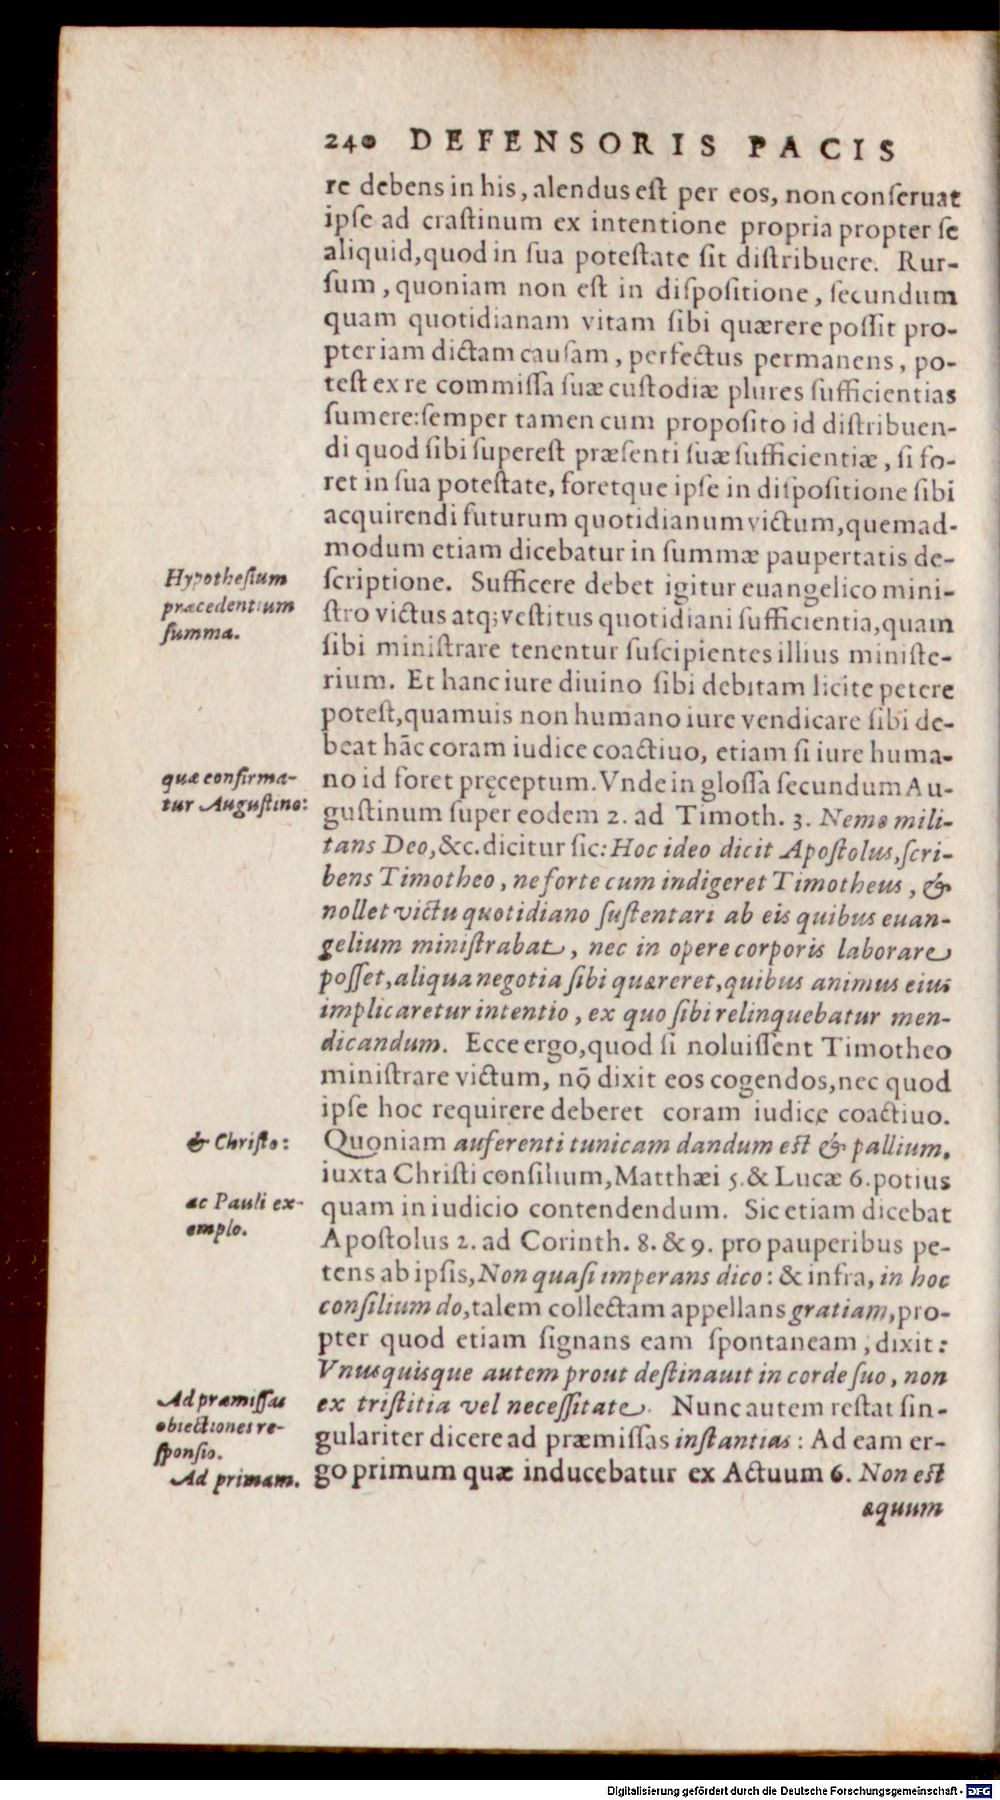 240 DEFENSORIS PACIS
re debens in his, alendus eſt per eos, non conſeruat
ipſe ad craſtinum ex intentione propria propter ſe
aliquid, quod in ſua poteſtate ſit diſtribuere. Rur-
ſum, quoniam non eſt in diſpoſitione, ſecundum
quam quotidianam vitam ſibi quærere poſſit pro-
pter iam dictam cauſam, perfectus permanens, po-
teſt ex re commiſſa ſuæ cuſtodiæ plures ſufficientias
ſumere: ſemper tamen cum propoſito id diſtribuen-
di quod ſibi ſupereſt præſenti ſuæ ſufficientiæ, ſi fo-
ret in ſua poteſtate, foretque ipſe in diſpoſitione ſibi
acquirendi futurum quotidianum victum, quemad-
modum etiam dicebatur in ſummæ paupertatis de-
Hypotheſium
præcedentium
ſumma.
ſcriptione. Sufficere debet igitur euangelico mini-
ſtro victus atq; veſtitus quotidiani ſufficientia, quam
ſibi miniſtrare tenentur ſuſcipientes illius miniſte-
rium. Et hanc iure diuino ſibi debitam licite petere
poteſt, quamuis non humano iure vendicare ſibi de-
beat hāc coram iudice coactiuo, etiam ſi iure huma-
quæ confirma-
tur Auguſtino:
no id foret pręceptum. Vnde in gloſſa ſecundum Au-
guſtinum ſuper eodem 2. ad Timoth. 3. Nemo mili-
tans Deo, &c. dicitur ſic: Hoc ideo dicit Apoſtolus, ſcri-
bens Timotheo, ne forte cum indigeret Timotheus, &
nollet victu quotidiano ſuſtentari ab eis quibus euan-
gelium miniſtrabat, nec in opere corporis laborare
poſſet, aliqua negotia ſibi quæreret, quibus animus eius
implicaretur intentio, ex quo ſibi relinquebatur men-
dicandum. Ecce ergo, quod ſi noluiſſent Timotheo
miniſtrare victum, nō dixit eos cogendos, nec quod
ipſe hoc requirere deberet coram iudice coactiuo.
& Chriſto:
Quoniam auferenti tunicam dandum eſt & pallium,
iuxta Chriſti conſilium, Matthæi 5. & Lucæ 6. potius
ac Pauli ex-
emplo.
quam in iudicio contendendum. Sic etiam dicebat
Apoſtolus 2. ad Corinth. 8. & 9. pro pauperibus pe-
tens ab ipſis, Non quaſi imperans dico: & infra, in hoc
conſilium do, talem collectam appellans gratiam, pro-
pter quod etiam ſignans eam ſpontaneam, dixit:
Vnuſquiſque autem prout deſtinauit in corde ſuo, non
Ad præmiſſas
obiectiones re-
ſponſio.
Ad primam.
ex triſtitia vel neceſſitate. Nunc autem reſtat ſin-
gulariter dicere ad præmiſſas inſtantias: Ad eam er-
go primum quæ inducebatur ex Actuum 6. Non eſt
æquum
Digitalisierung gefördert durch die Deutsche Forschungsgemeinschaft - DFG